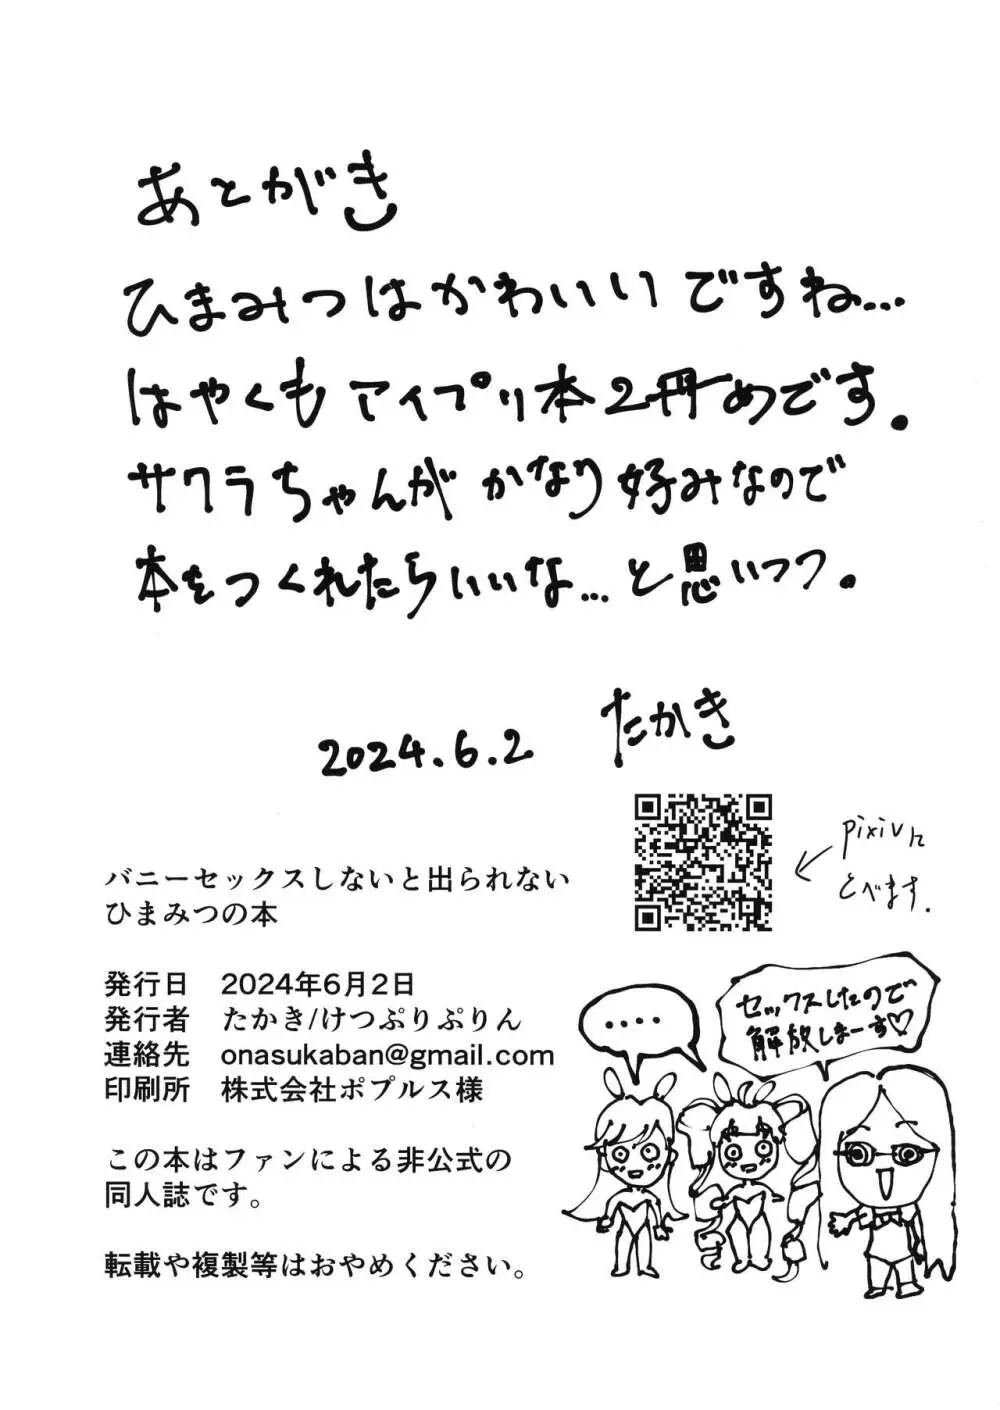 あとがき
ひまみつはかわいいですね…
はやくもアイプリ本2冊めです。
サクラちゃんがかなり好みなので
本をつくれたらいいな…と思いつつ。
2024.6.2 たかき
pixivに
とべます。
バニーセックスしないと出られない
ひまみつの本
発行日 2024年6月2日
発行者 たかき/けつぷりぷりん
連絡先 onasukaban@gmail.com
印刷所 株式会社ポプルス様
この本はファンによる非公式の
同人誌です。
転載や複製等はおやめください。
....
セックスしたので
解放しまーす♡